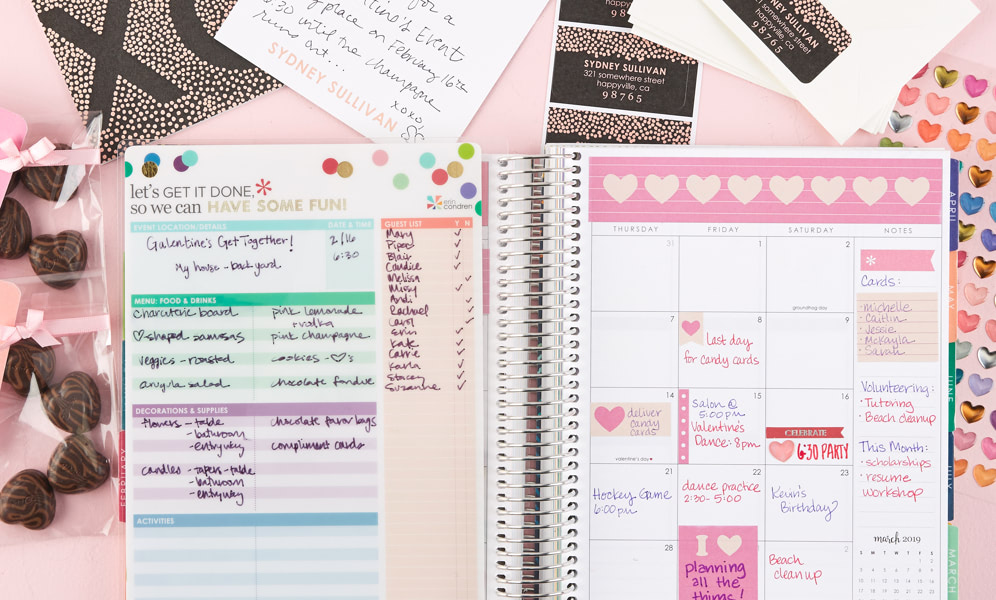 for a
tine's Event
place on February 16th
:30 until the champagne
runs out...
xoxo
SYDNEY SULLIVAN
SYDNEY SULLIVAN
321 somewhere street
happyville, ca
98765
SYDNEY SULLIVAN
somewhere street
happyville, ca
98765
let's GET IT DONE
so we can HAVE SOME FUN!
erin condren
EVENT LOCATION, DETAILS
DATE & TIME
Galentine's Get Together!
2/16
6:30
My house - backyard
GUEST LIST Y N
Mary ✓
Piper ✓
Blair ✓
Candice ✓
Melissa ✓
Missy ✓
Andi ✓
Rachael ✓
Carol ✓
Erin ✓
Kate ✓
Carrie ✓
Karla ✓
Stacey ✓
Suzanne ✓
MENU: FOOD & DRINKS
charcuterie board
pink lemonade
+ vodka
♡-shaped samosas
pink champagne
veggies - roasted
cookies - ♡'s
arugula salad
chocolate fondue
DECORATIONS & SUPPLIES
flowers - table
- bathroom
- entryway
chocolate favor bags
compliment cards
candles - tapers - table
- bathroom
- entryway
ACTIVITIES
FEBRUARY
THURSDAY FRIDAY SATURDAY NOTES
31 1 2
groundhog day
7 8 9
last day
for candy cards
14 15 16
deliver
candy
cards
valentine's day ♥
Salon @
5:00pm
Valentine's
Dance: 8pm
CELEBRATE
6:30 PARTY
21 22 23
Hockey Game
6:00pm
dance practice
2:30-5:00
Kevin's
Birthday
28 1 2
I ♥
planning
all the
things!
Beach
cleanup
Cards:
· michelle
· Caitlin
· Jessie
· McKayla
· Sarah
Volunteering:
· Tutoring
· Beach cleanup
This Month:
· scholarships
· resume
workshop
march 2019
S M T W T F S
1 2
3 4 5 6 7 8 9
10 11 12 13 14 15 16
APRIL
MAY
JUNE
JULY
MARCH